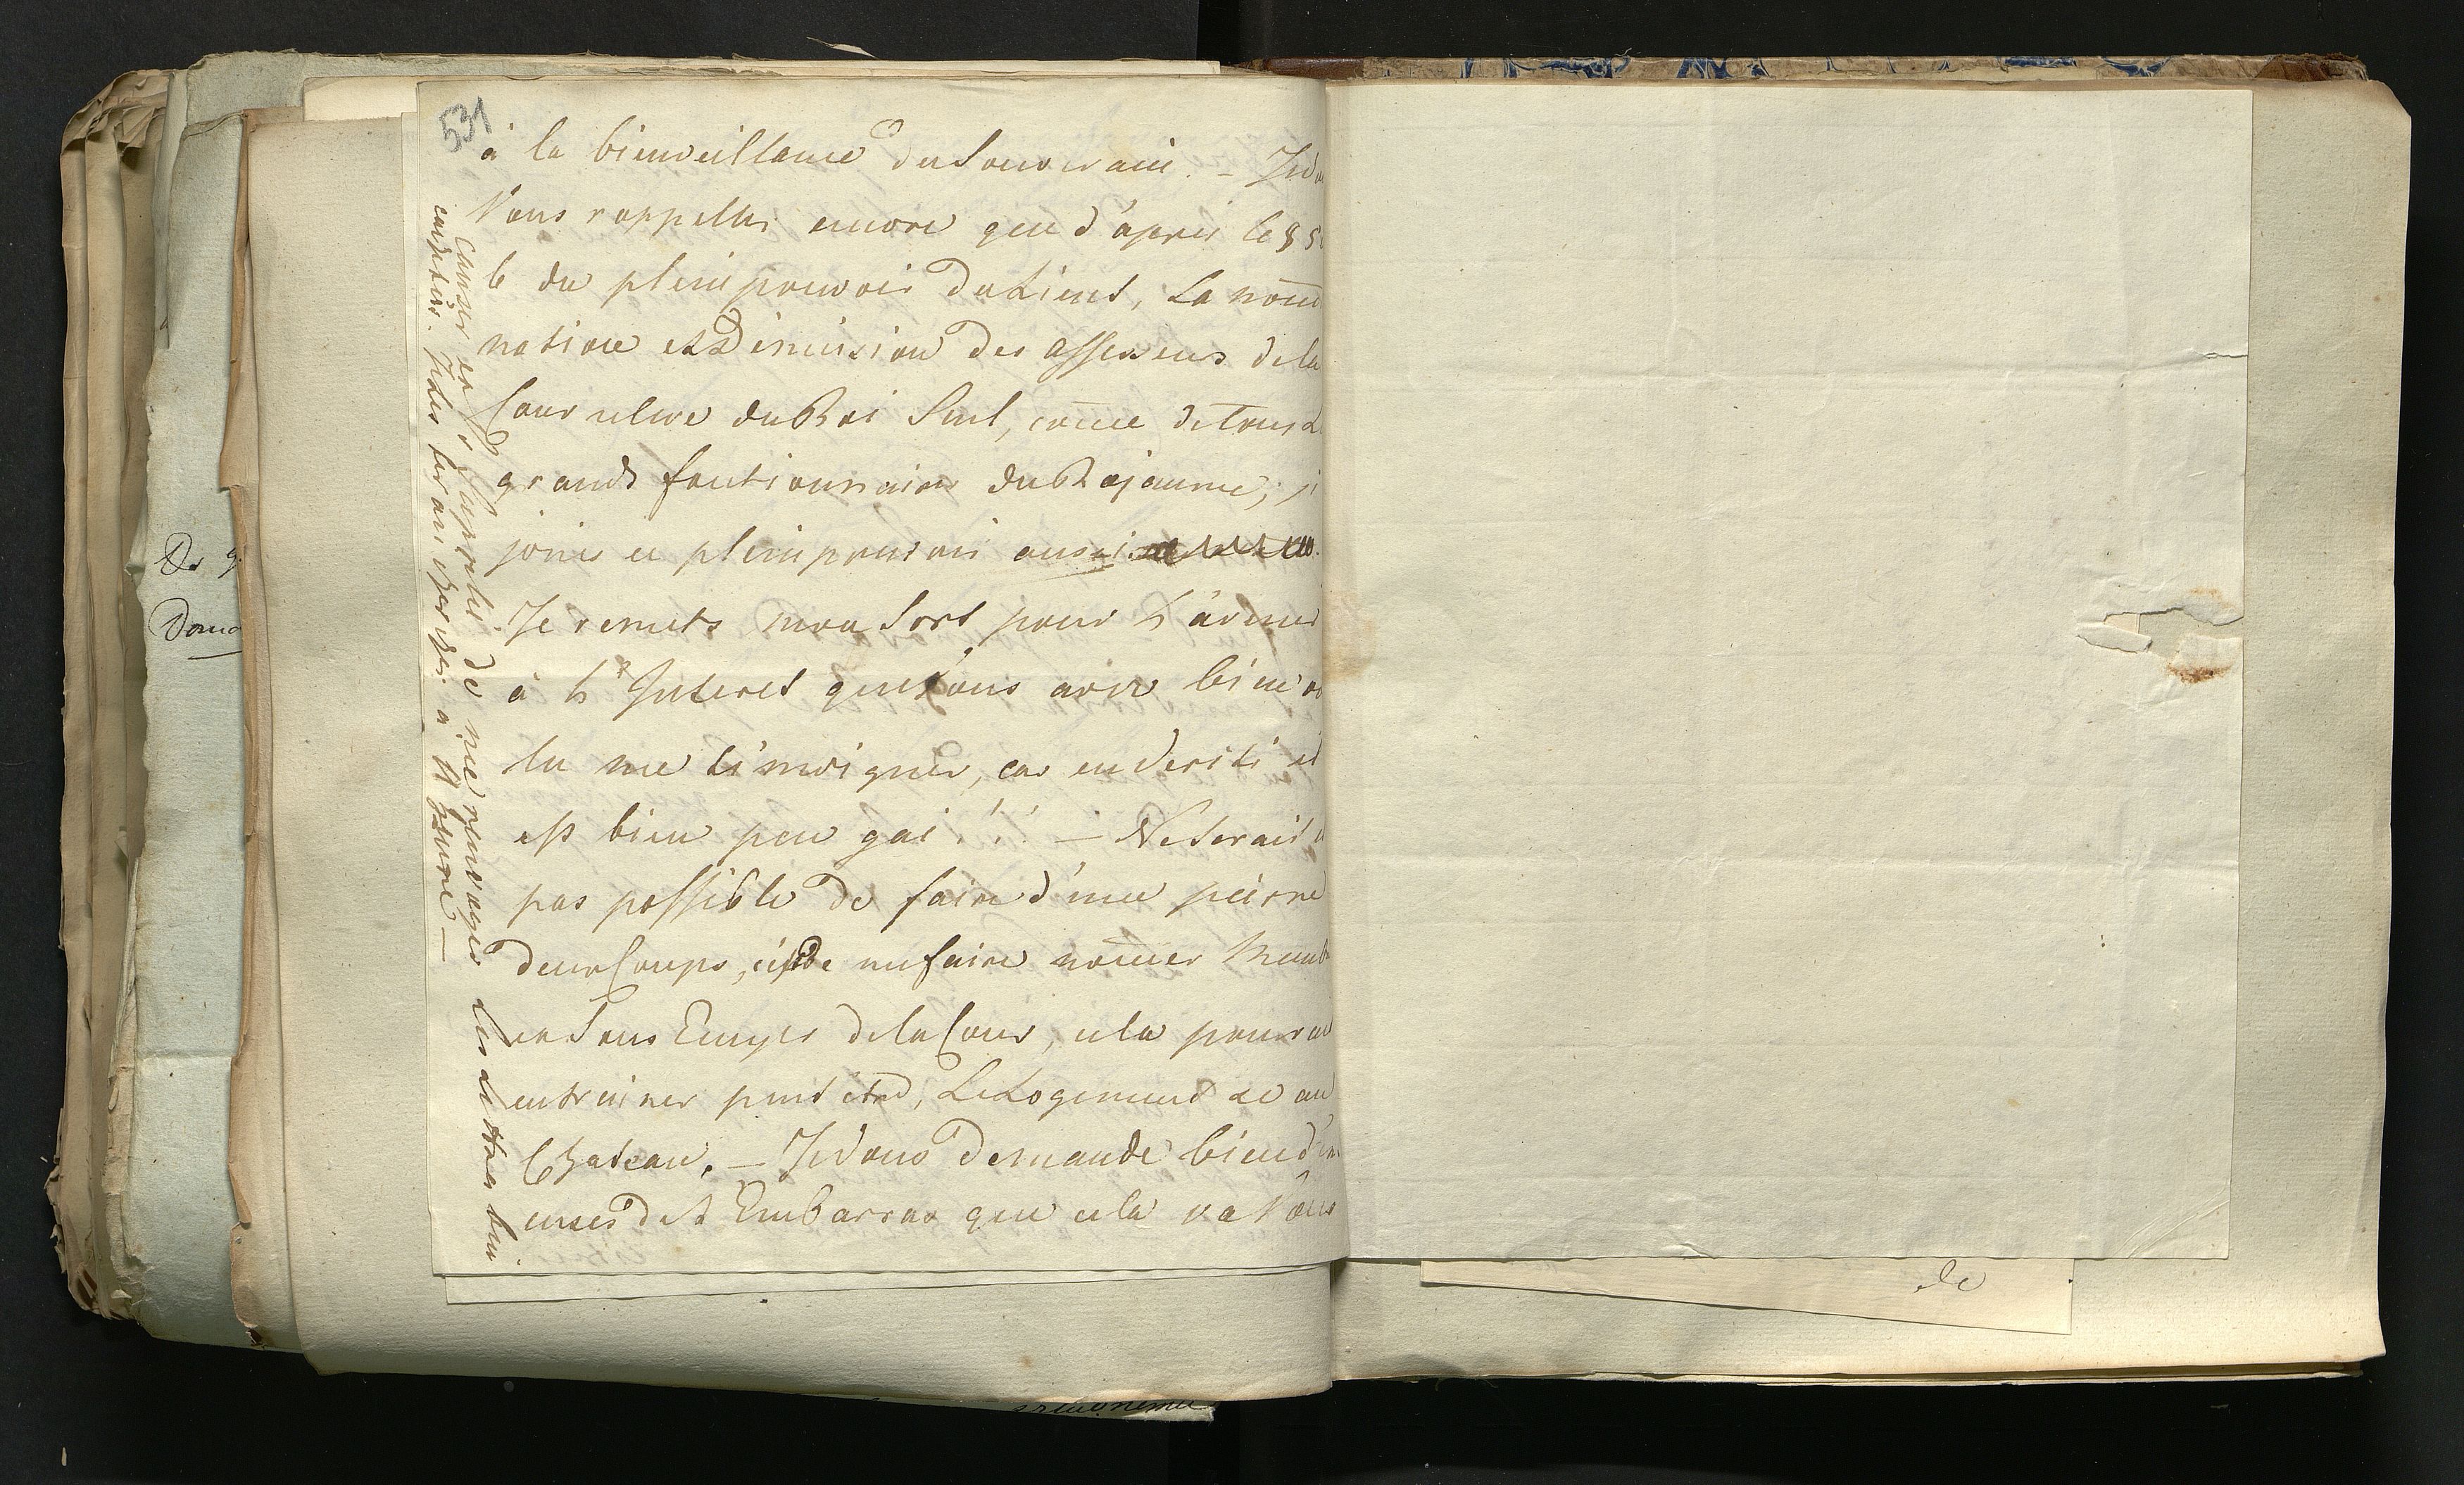 531
à la bienveillance du Souverain. – Je d
Vous rappeller encore que d'après le § 5
6 du plein pouvoir du Lieut, La nom̄
nation et Demission des assesseurs de la
Cour relève du Roi Seul, com̄e de tous L
grands fontionnaires du Rojaume; j
joins ce plein pouvoir aussi.
Je remets mon Sort pour L'avenir
à L'Interet que Vous avez bien vo
lu me témoigner, car en Verité il
est bien peu gai!!! — Ne Serait
pas possible de faire d'une pierre
deux Coups, c'est de me faire nom̄er Memb
et Sous Ecuyer de la Cour, cela pourra
entrainer peut être, Le Logement au
Chateau. — Je Vous Demande bien d'
cuses de L'Embarras que cela va Vous
causer et Vous Supplie de me renvoyer les Lettres
cachetées. Je les ferai charger à
De g
Dona
de